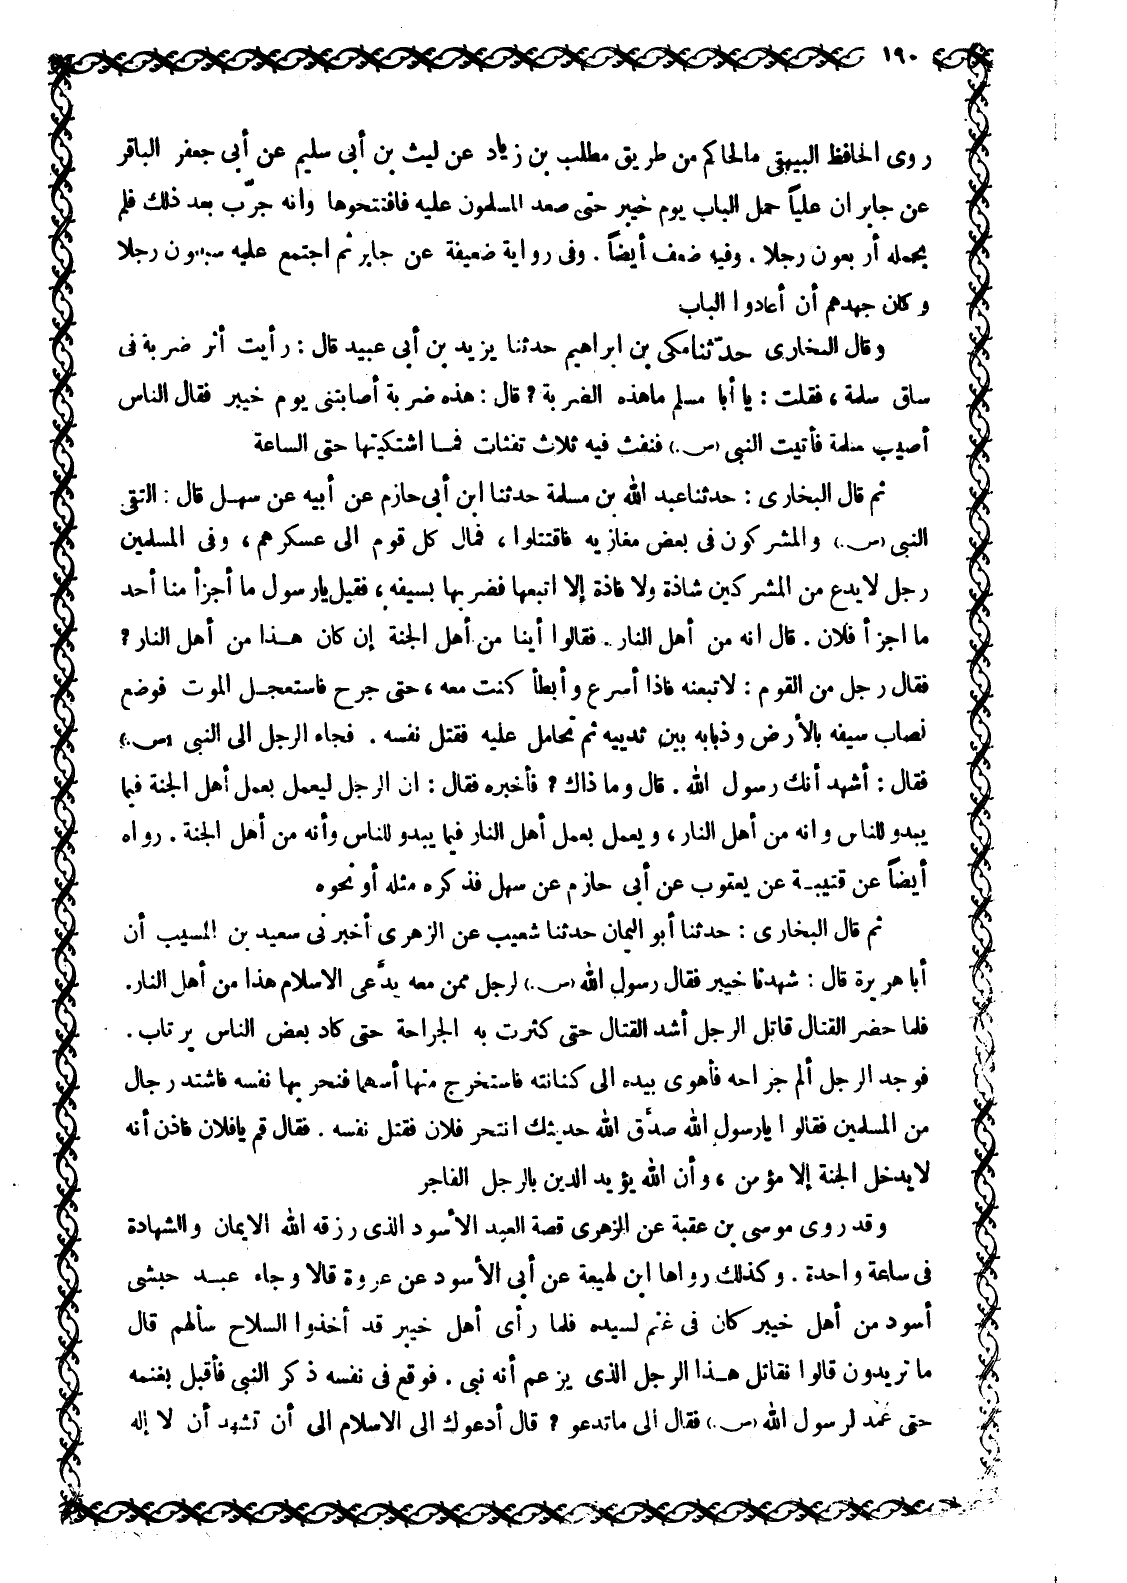 ١٩٠
روى الحافظ البيهقى مالحاكم من طريق مطلب بن زياد عن ليث بن أبى سليم عن أبى جعفر الباقر
عن جابر ان علياً حمل الباب يوم خيبر حتى صعد المسلمون عليه فافتتحوها وانه جرّب بعد ذلك فلم
يحمله أربعون رجلا . وفيه ضعف أيضاً . وفى رواية ضعيفة عن جابر ثم اجتمع عليه سبعون رجلا
وكان جهدهم أن أعادوا الباب
وقال البخارى حدّثنا مكى بن ابراهيم حدثنا يزيد بن أبى عبيد قال : رأيت أثر ضربة فى
ساق سلمة ، فقلت : يا أبا مسلم ماهذه الضربة ? قال : هذه ضربة أصابتنى يوم خيبر فقال الناس
أصيب سلمة فأتيت النبى (ص.) فنفث فيه ثلاث تفثات فمـا اشتكيتها حتى الساعة
ثم قال البخارى : حدثنا عبد الله بن مسلمة حدثنا ابن أبى حازم عن أبيه عن سهـل قال : التقى
النبى (ص.) والمشركون فى بعض مغازيه فاقتتلوا ، فمال كل قوم الى عسكرهم ، وفى المسلمين
رجل لايدع من المشركين شاذة ولا فاذة إلا اتبعها فضربها بسيفه ، فقيل يارسول ما أجزأ منا أحد
ما اجزأ فلان . قال انه من أهل النار . فقالوا أينا من أهل الجنة إن كان هـذا من أهل النار ?
فقال رجل من القوم : لاتبعنه فاذا أسرع وأبطأ كنت معه ، حتى جرح فاستعجـل الموت فوضع
نصاب سيفه بالأرض وذبابه بين ثدييه ثم تحامل عليه فقتل نفسه . فجاء الرجل الى النبى (ص.)
فقال : أشهد أنك رسول الله . قال وما ذاك ? فأخبره فقال : ان الرجل ليعمل بعمل أهل الجنة فيما
يبدو للناس وانه من أهل النار ، ويعمل بعمل أهل النار فيما يبدو للناس وأنه من أهل الجنة . رواه
أيضاً عن قتيبـة عن يعقوب عن أبى حازم عن سهل فذكره مثله أو نحوه
ثم قال البخارى : حدثنا أبو اليمان حدثنا شعيب عن الزهرى أخبرنى سعيد بن المسيب أن
أبا هريرة قال : شهدنا خيبر فقال رسول الله (ص.) لرجل ممن معه يدَّعى الاسلام هذا من أهل النار.
فلما حضر القتال قاتل الرجل أشد القتال حتى كثرت به الجراحة حتى كاد بعض الناس يرتاب .
فوجد الرجل ألم جراحه فأهوى بيده الى كنانته فاستخرج منها أسهما فنحر بها نفسه فاشتد رجال
من المسلمين فقالوا يارسول الله صدَّق الله حديثك انتحر فلان فقتل نفسه . فقال قم يافلان فاذن أنه
لايدخل الجنة إلا مؤمن ، وأن الله يؤيد الدين بالرجل الفاجر
وقد روى موسى بن عقبة عن الزهرى قصة العبد الأسود الذى رزقه الله الايمان والشهادة
فى ساعة واحدة . وكذلك رواها ابن لهيعة عن أبى الأسود عن عروة قالا وجاء عبـد حبشى
أسود من أهل خيبر كان فى غنم لسيده فلما رأى أهل خيبر قد أخذوا السلاح سألهم قال
ماتريدون قالوا نقاتل هـذا الرجل الذى يزعم أنه نبى . فوقع فى نفسه ذكر النبى فأقبل بغنمه
حتى عمد لرسول الله (ص.) فقال الى ماتدعو ? قال أدعوك الى الاسلام الى أن تشهد أن لا إله